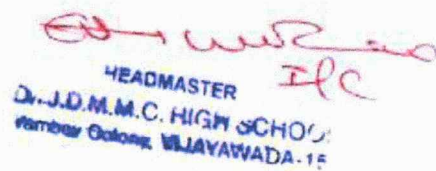 I/C
HEADMASTER
Dr. J.D.M.M.C. HIGH SCHOOL
Vambay Colony, VIJAYAWADA-15